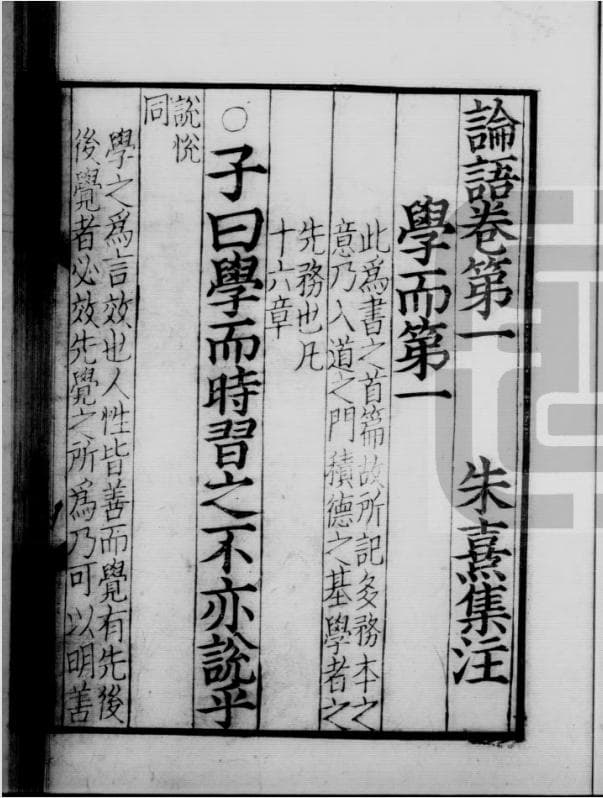 論語卷第一 朱熹集注
學而第一
此爲書之首篇故所記多務本之
意乃入道之門積德之基學者之
先務也凡
十六章
○子曰學而時習之不亦說乎
說悅
同
學之爲言效也人性皆善而覺有先後
後覺者必效先覺之所爲乃可以明善